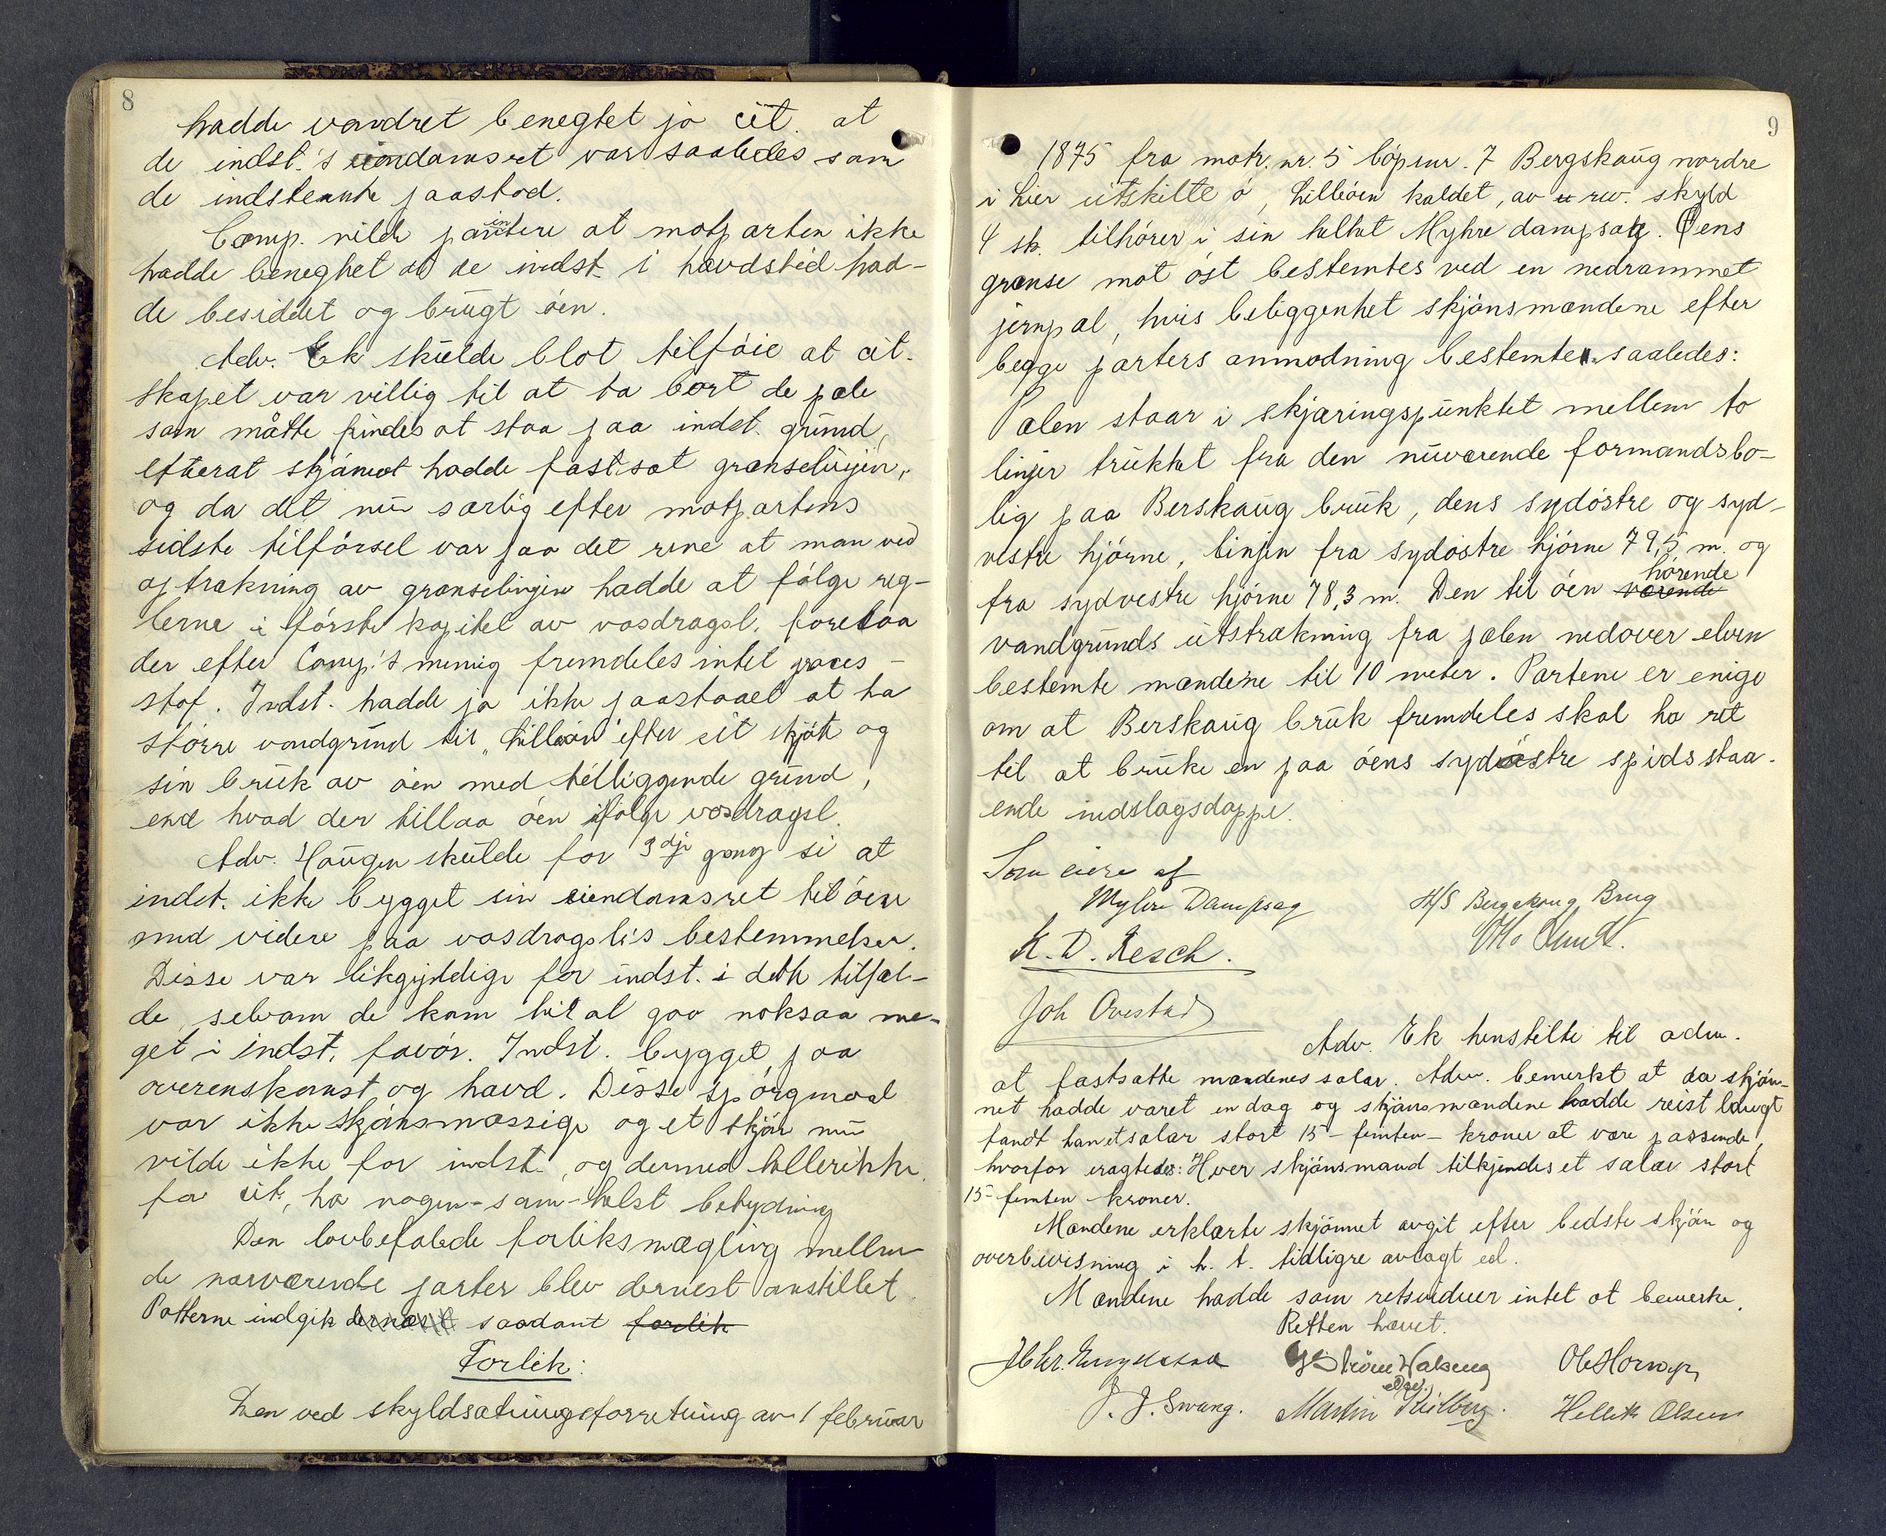 8
hadde vandret benegtet jo cit. at
de indst.'s eiendomsret var saaledes som
de indstevnte paastod.
Comp. vilde paa at motparten ikke
hadde benegtet at de indst. i hævdstid had-
de besiddet og brugt öen.
Adv. Ek skulde blot tilföie at cit-
skapet var villig til at ta bort de pæle
som måtte findes at staa paa indst. grund,
efterat skjönnet hadde fastsat grænselinjen,
og da det nu særlig efter motpartens
sidste tilförsel var paa det rene at man ved
optrækning av grænselinjen hadde at fölge reg-
lerne i förste kapitel av vasdragsl. forelaa
der efter Comp.'s mening fremdeles intet proces-
stof. Indst. hadde jo ikke paastaaet at ha
större vandgrund til "Lilleöen" efter sit skjöte og
sin bruk av öen med tilliggende grund,
end hvad der tillaa öen ifölge vasdragsl.
Adv. Haugen skulde for 3dje gang si at
indst. ikke bygget sin eiendomsret til öen
med videre paa vasdragsl.'s bestemmelser.
Disse var likegyldige for indst. i dette tilfæl-
de, selvom de kom til at gaa noksaa me-
get i indst. favör. Indst. bygget paa
overenskomst og hævd. Disse spörgmaal
var ikke skjönsmæssige og et skjön nu
vilde ikke for indst. og dermed hellerikke
for cit. ha nogen-som-helst betydning
Den lovbefalede forliksmægling mellem
de nærværende parter blev dernest anstillet.
Parterne indgik dernæst saadant forlik
Forlik:
Den ved skyldsætningsforretning av 1 februar
9
1875 fra matr. nr. 5 löpenr. 7 Bergskaug nordre
i Lier utskilte ö, Lilleöen kaldet, av u rev. skyld
4 sk. tilhörer i sin helhet Myhre dampsag. Öens
grænse mot öst bestemtes ved en nedrammet
jernpæl, hvis beliggenhet skjönsmændene efter
begge parters anmodning bestemte saaledes:
Pælen staar i skjæringspunktet mellem to
linjer trukket fra den nuværende formandsbo-
lig paa Berskaug bruk, dens sydöstre og syd-
vestre hjörne, linjen fra sydöstre hjörne 79,5 m. og
fra sydvestre hjörne 78,3 m. Den til öen værende hörende
vandgrunds utstrækning fra pælen nedover elven
bestemte mændene til 10 meter. Partene er enige
om at Berskaug bruk fremdeles skal ha ret
til at bruke en paa öens sydöstre spids staa-
ende indslagsdoppe.
Som eiere af
Myhre Dampsag
H/S Bergskaug Brug
K. D. Resch.
Otto
Joh Ovestad
Adv. Ek henstilte til adm.
at fastsætte mændenes salær. Adm. bemerket at da skjön-
net hadde varet en dag og skjönsmændene hadde reist langt
fandt han et salær stort 15 - femten - kroner at være passende,
hvorfor eragtedes: Hver skjönsmand tilkjendes et salær stort
15 - femten kroner.
Mændene erklærte skjönnet avgit efter bedste skjön og
overbevisning i h. t. tidligre avlagt ed.
Mændene hadde som retsvidner intet at bemerke.
Retten hævet.
J. J. Svang.
Martin
Hellik Olsen